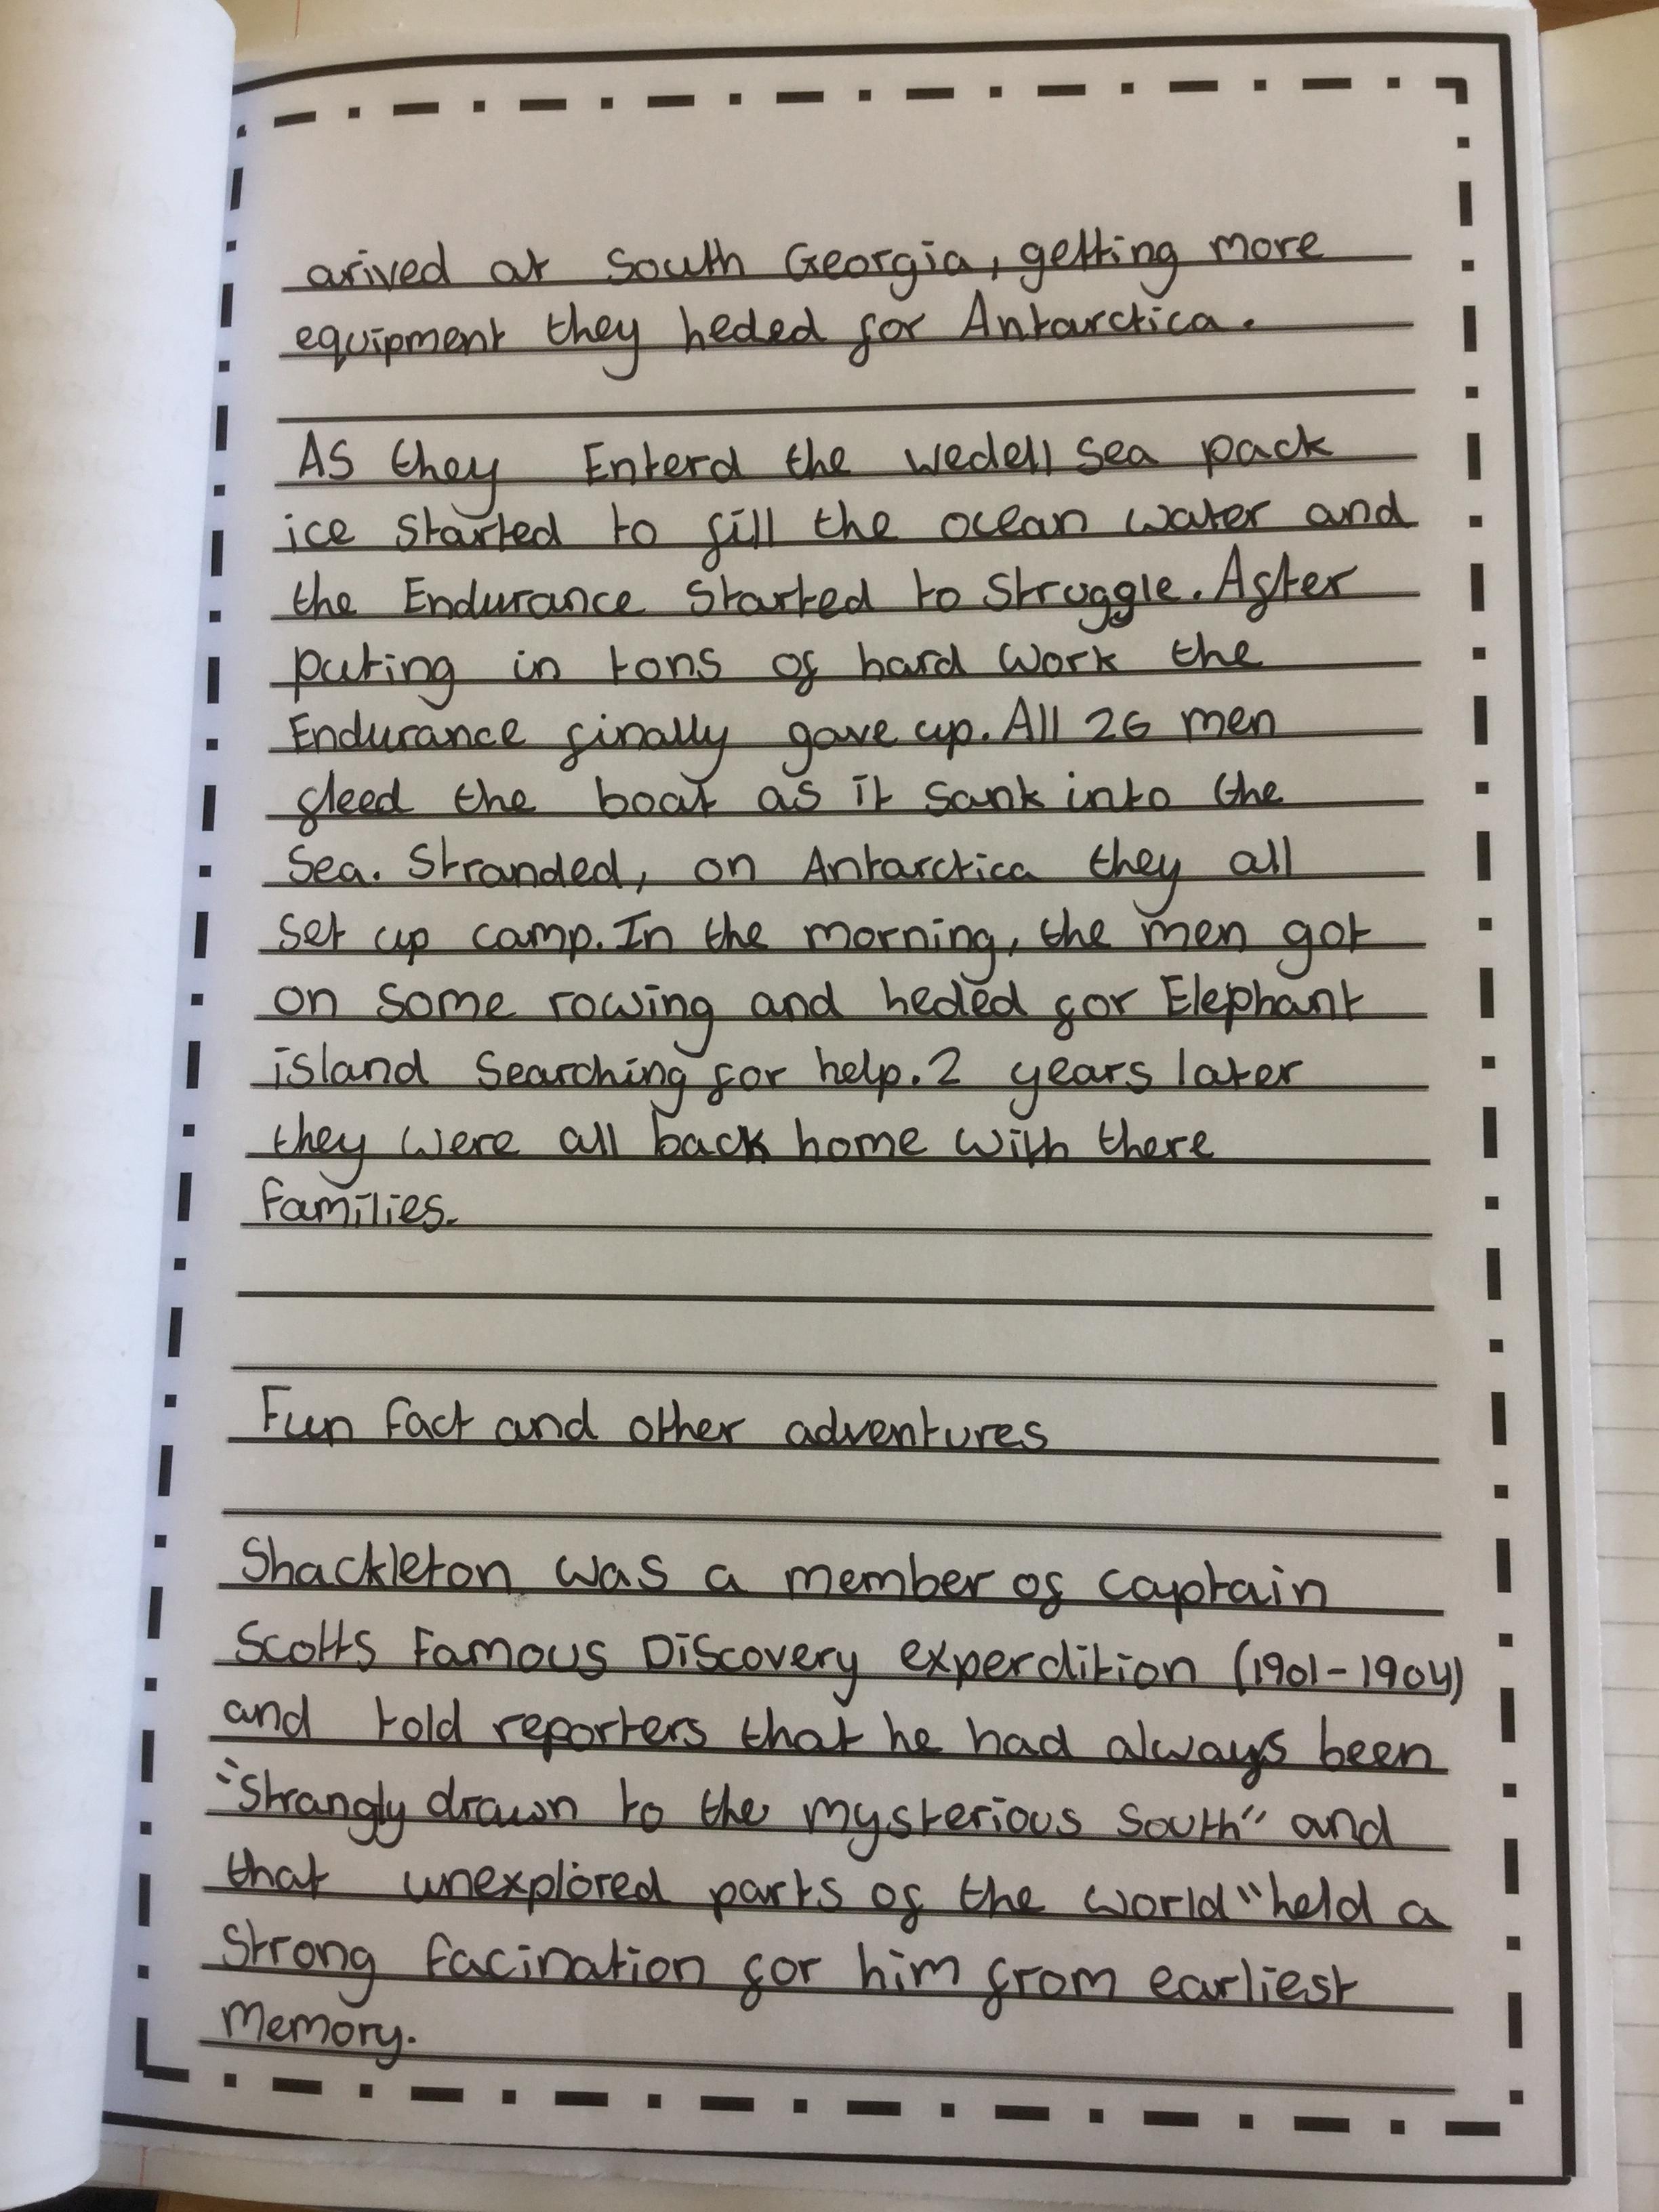 arived at South Georgia, getting more
equipment they heded for Antarctica.
As they Enterd the wedell sea pack
ice started to fill the ocean water and
the Endurance started to struggle. After
puting in tons of hard work the
Endurance finally gave up. All 26 men
fleed the boat as it sank into the
sea. Stranded, on Antarctica they all
set up camp. In the morning, the men got
on some rowing and heded for Elephant
island searching for help. 2 years later
they were all back home with there
families.
Fun fact and other adventures
Shackleton was a member of captain
Scotts Famous Discovery experdition (1901-1904)
and told reporters that he had always been
"strangly drawn to the mysterious south" and
that unexplored parts of the world "held a
strong facination for him from earliest
memory.